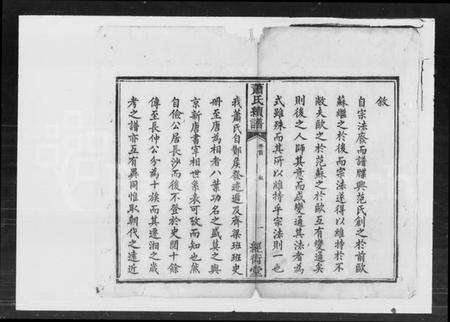 敘
自宗法廢而譜牒興范氏創之於前歐
蘇繼之於後而宗法遂得以維持於不
敝夫歐之於范蘇之於歐互有變通矣
則後之人師其意而或變通其法者為
式雖殊而其所以維持乎宗法則一也
蕭氏續譜
卷首
敘
一
經術堂
我蕭氏自酇侯發迹遞及齊梁班班史
冊至唐為相者八葉功名之盛莫之與
京新唐書宰相世系表可攷而知也
自儉公居長沙而後不登於史閱十餘
傳至長仲公分為十族而其遷湘之歲
考之譜亦互有異同惟取朝代之遠近